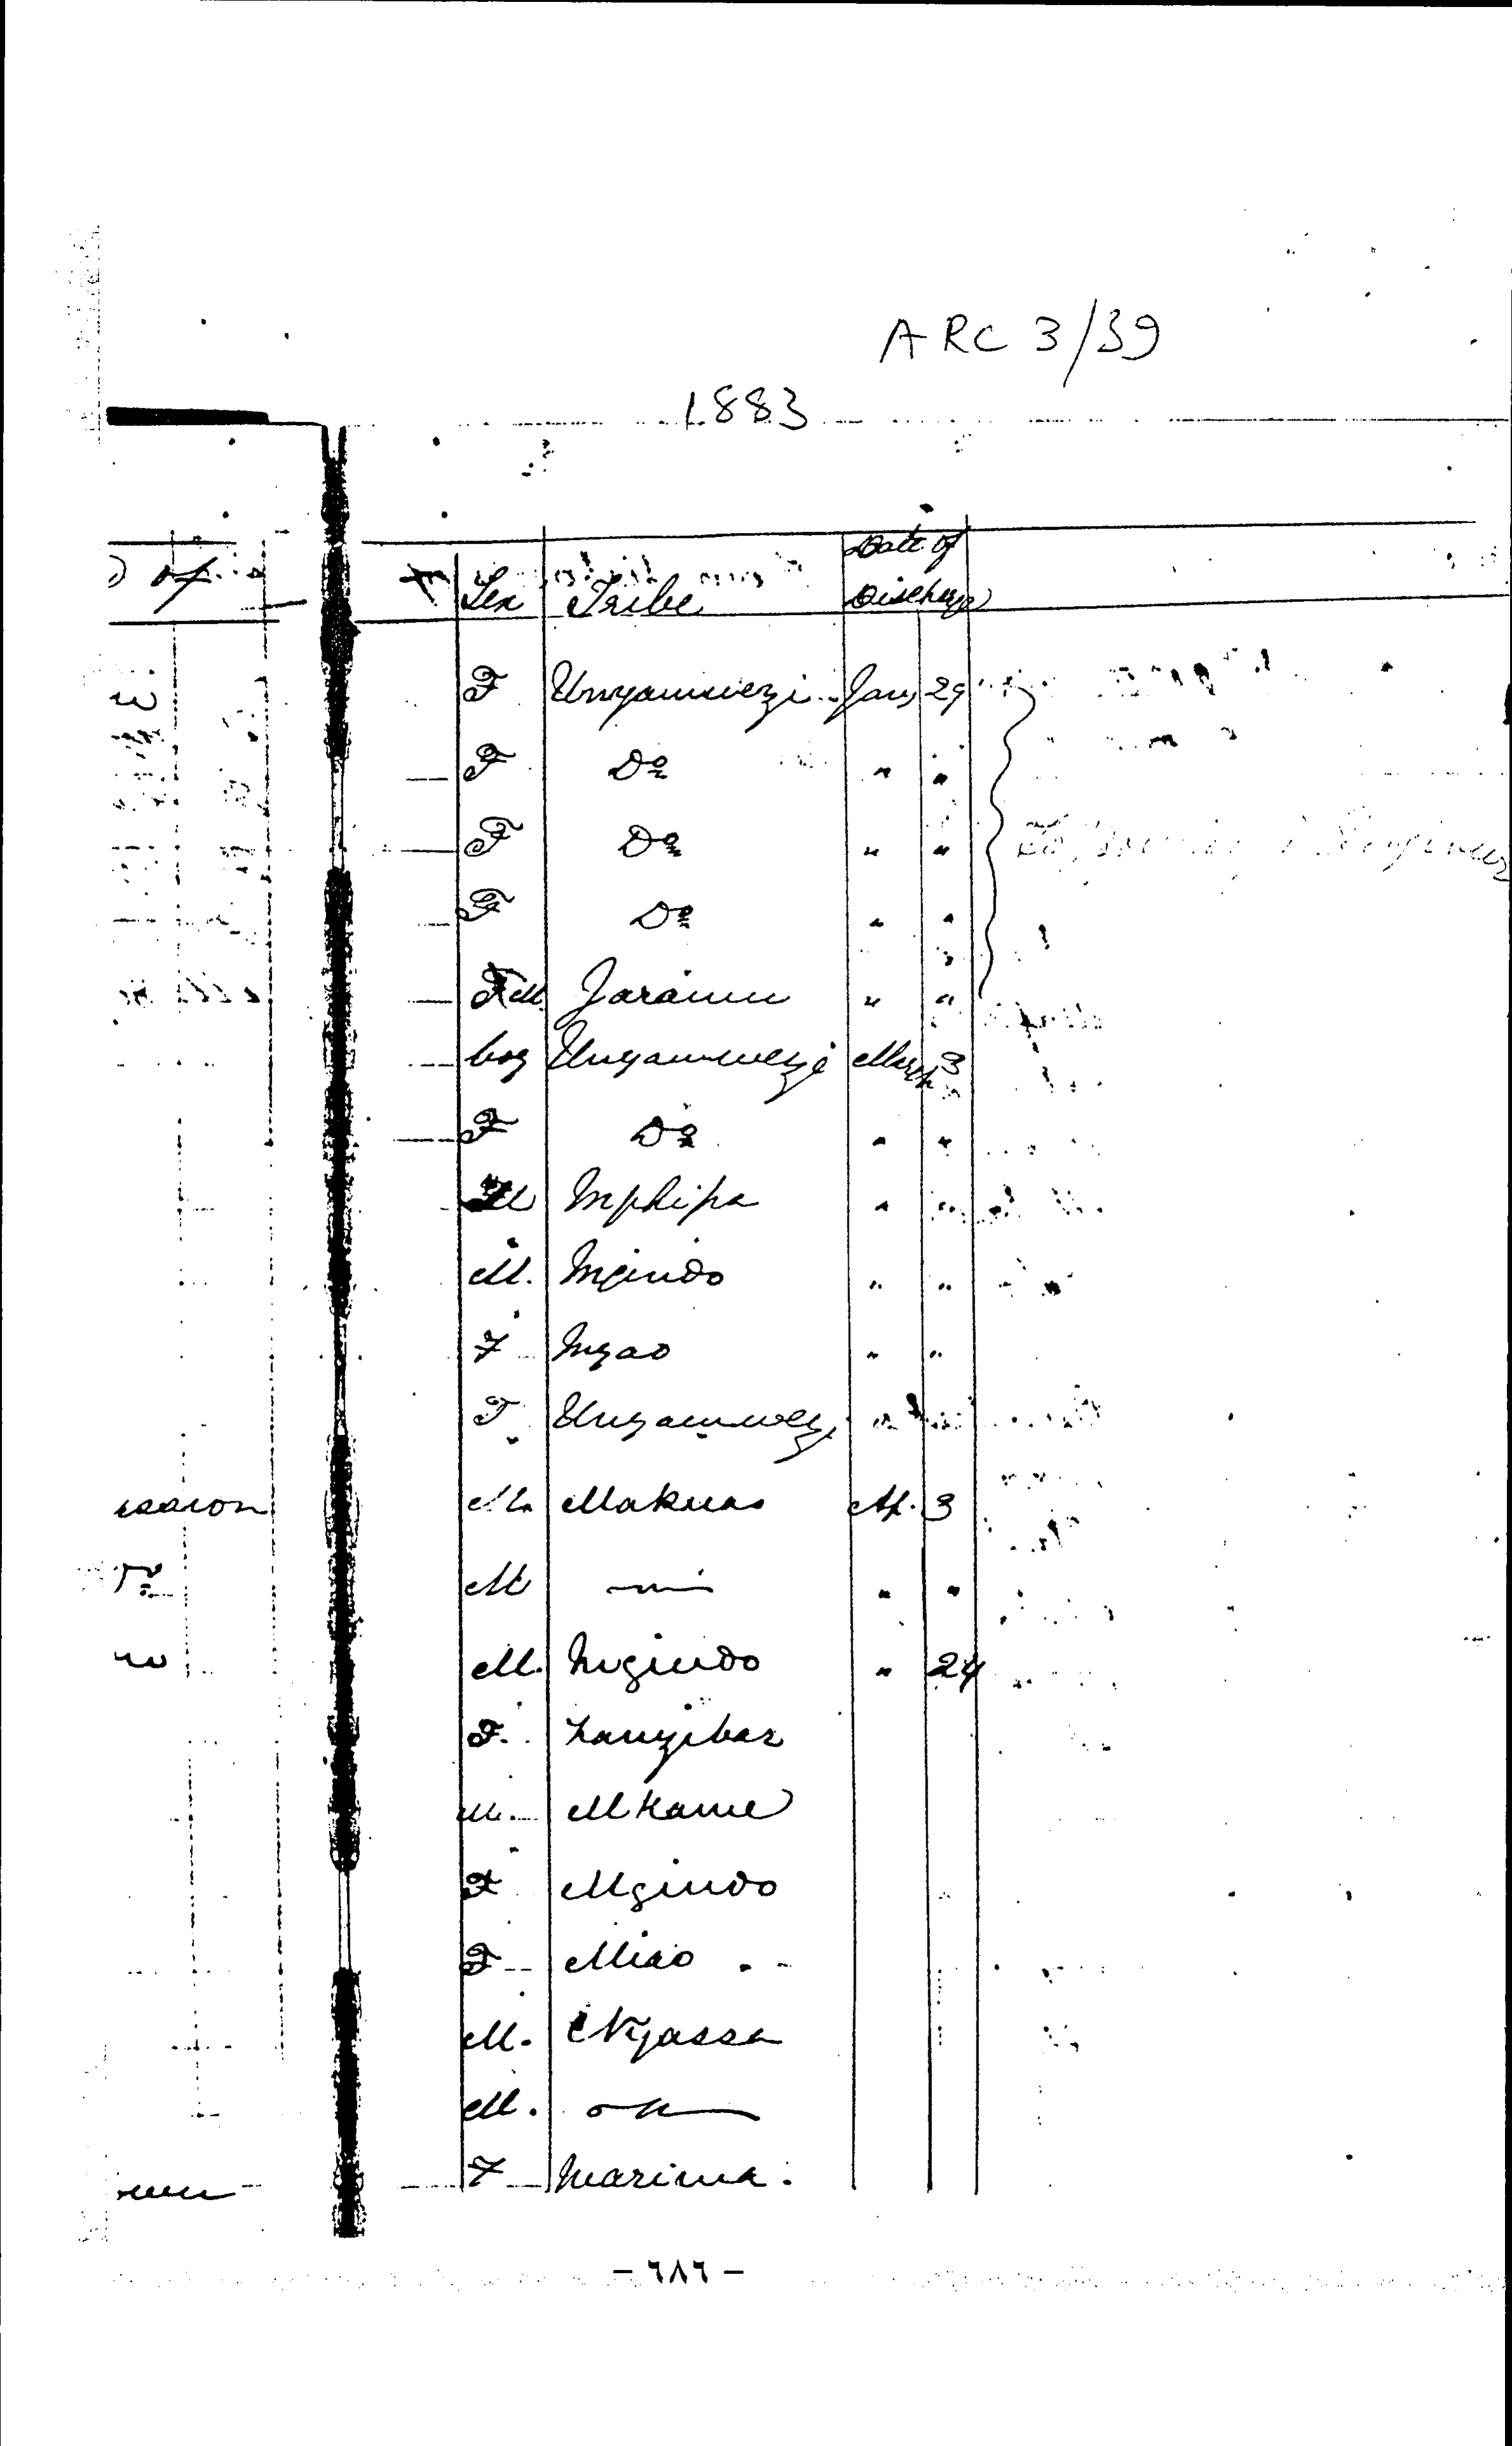 ARC 3/39
1883
Date of
of Sex Tribe Discharge
F Unyamwezi Jany 29
F Do " "
F Do " "
F Do " "
M Jaramu " "
boy Unyamwezi March 3
F Do " "
M Mphipa " "
M. Mgindo " "
F Myao " "
F Unyamwezi " "
M Makuas Ap. 3
M — " "
M. Mgindo " 24
F. Zanzibar
M. Mkame
F Mgindo
F Miao
M. Nyassa
M.
F Marima.
- ٦٨٦ -